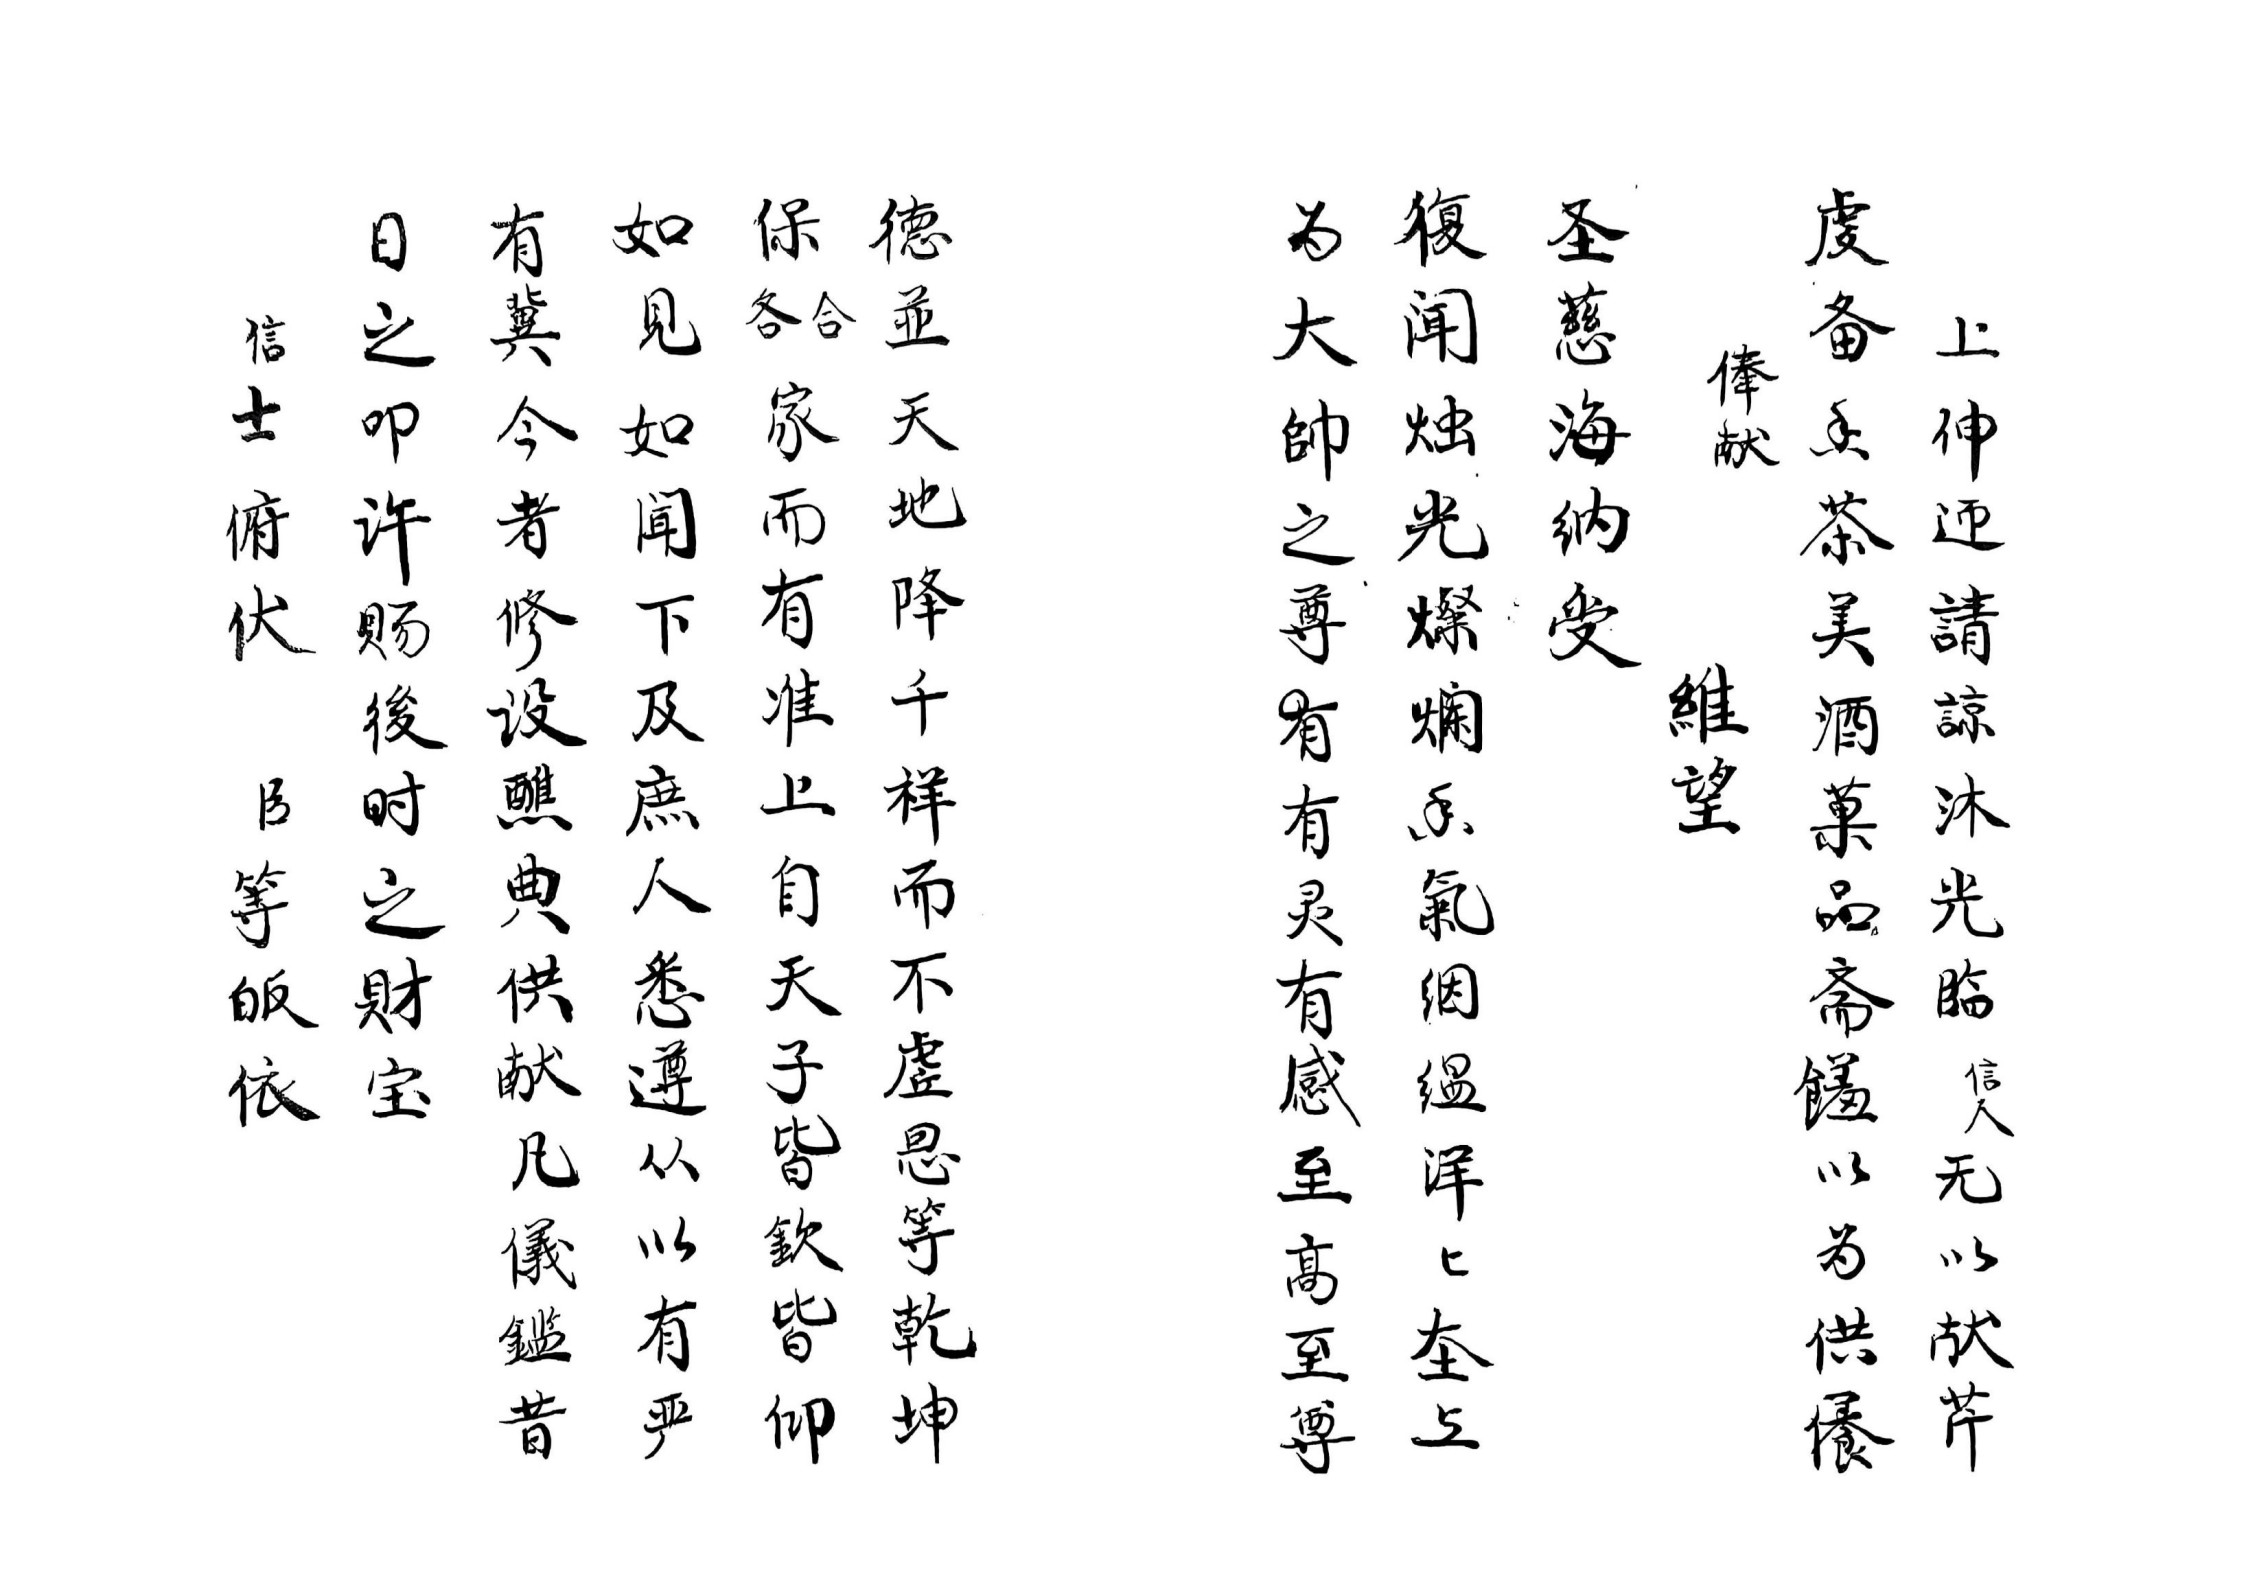 上伸迎請諒沐光臨信人无以献芹
虔备香茶美酒菓品斋饈以为供養
俸献
維望
圣慈海纳受
復闻烛光燦爛香氣絪緼洋匕在上
为大帥之尊有有灵有感至高至尊
德並天地降千祥而不虚恩等乾坤
保合各家而有准上自天子皆欽皆仰
如見如闻下及庶人悉遵从以有严
有冀今者修设醮典供献凡儀鑑昔
日之叩许赐後时之財宝
信士俯伏臣等皈依